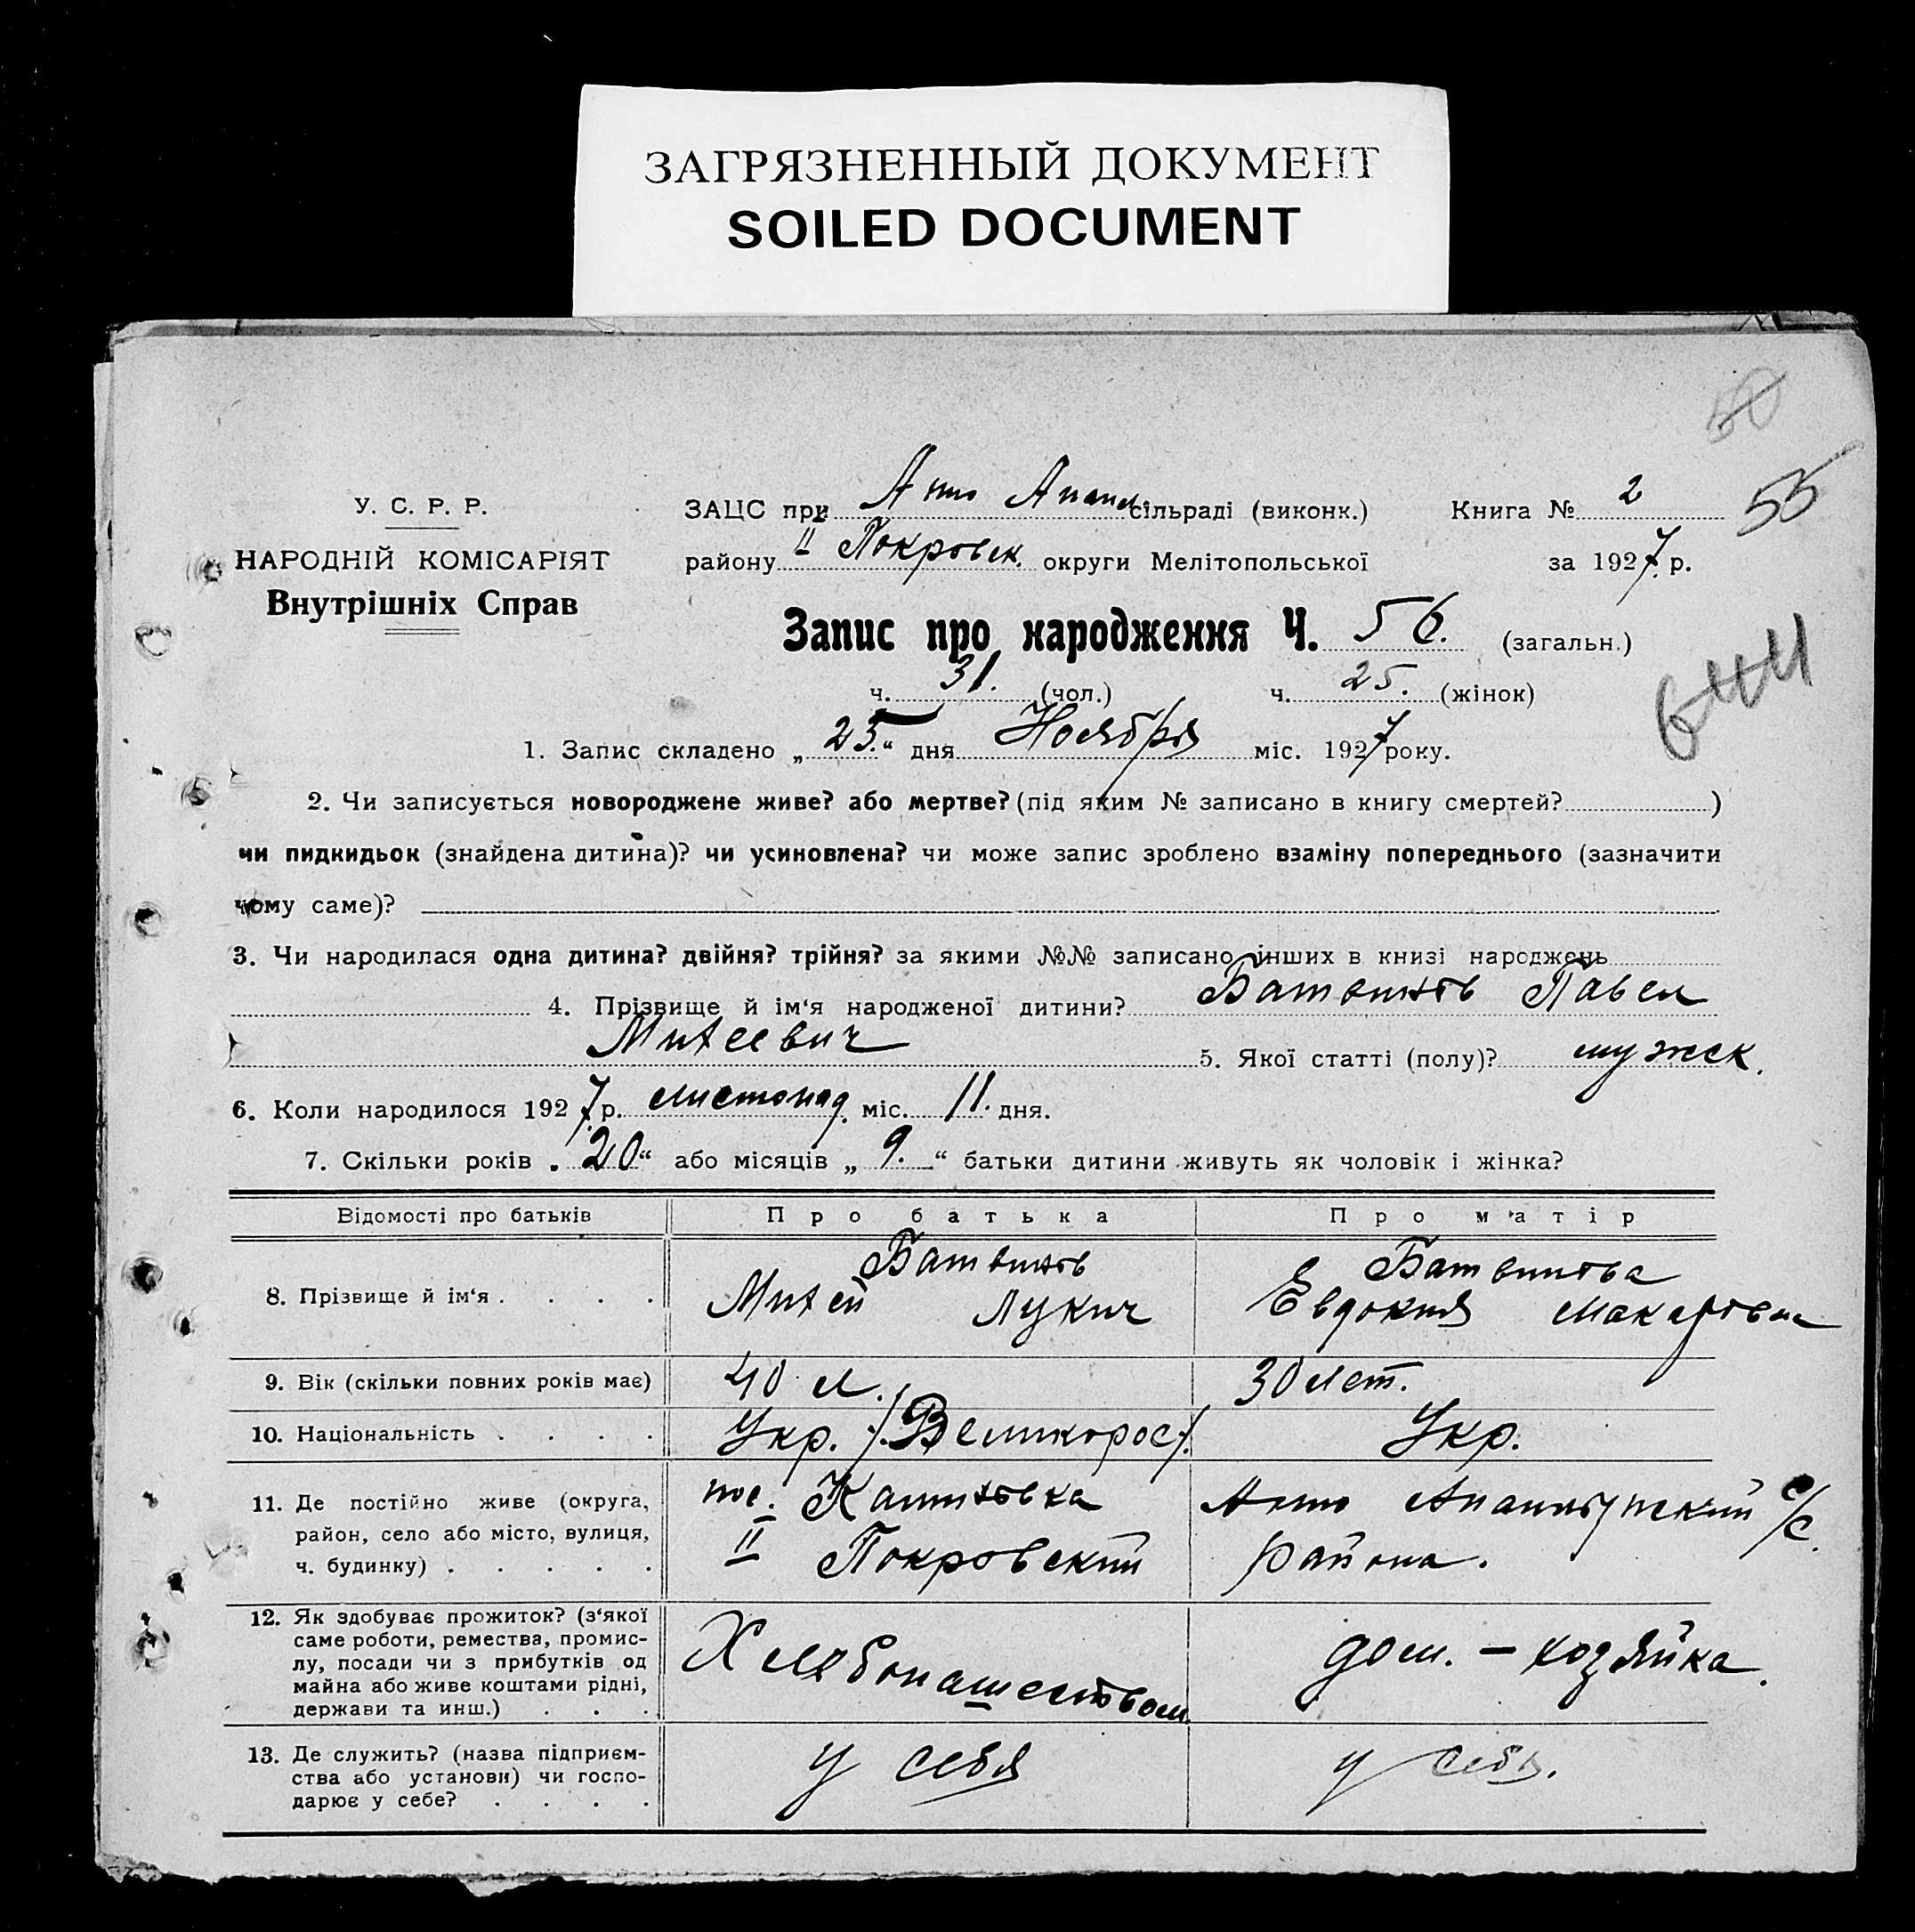 ЗАГРЯЗНЕННЫЙ ДОКУМЕНТ
SOILED DOCUMENT
55
У. С. Р. Р.
НАРОДНІЙ КОМІСАРІЯТ
Внутрішніх Справ
ЗАЦС при Анно сільраді (виконк.) Книга № 2
району II Покровск. округи Мелітопольської за 1927 р.
Запис про народження Ч. 56. (загальн.)
ч. 31. (чол.) ч. 25. (жінок)
1. Запис складено „ 25. “ дня Ноября міс. 1927 року.
2. Чи записується новороджене живе? або мертве? (під яким № записано в книгу смертей? )
чи пидкидьок (знайдена дитина)? чи усиновлена? чи може запис зроблено взаміну попереднього (зазначити
чому саме)?
3. Чи народилася одна дитина? двійня? трійня? за якими №№ записано інших в книзі народжень
4. Прізвище й ім‘я народженої дитини? Батвинов Павел
Михеевич 5. Якої статті (полу)? мужск.
6. Коли народилося 1927 р. листопад. міс. 11. дня.
7. Скільки років „ 20 “ або місяців „ 9. “ батьки дитини живуть як чоловік і жінка?
Відомості про батьків Про батька Про матір
8. Прізвище й ім‘я . . . . Батвинов Михей Лукич Батвинова Евдокия Макаровна
9. Вік (скільки повних років має) 40 л. 30 лет.
10. Національність . . . . Укр. /Великорос/. Укр.
11. Де постійно живе (округа, район, село або місто, вулиця, ч. будинку) . . . . . пос. II Покровский Анно с/с. района.
12. Як здобуває прожиток? (з‘якої саме роботи, ремества, промислу, посади чи з прибутків од майна або живе коштами рідні, держави та инш.) . . . Хлебопашеством дом. - хозяйка.
13. Де служить? (назва підприємства або установи) чи господарює у себе? . . . . у себя у себя.